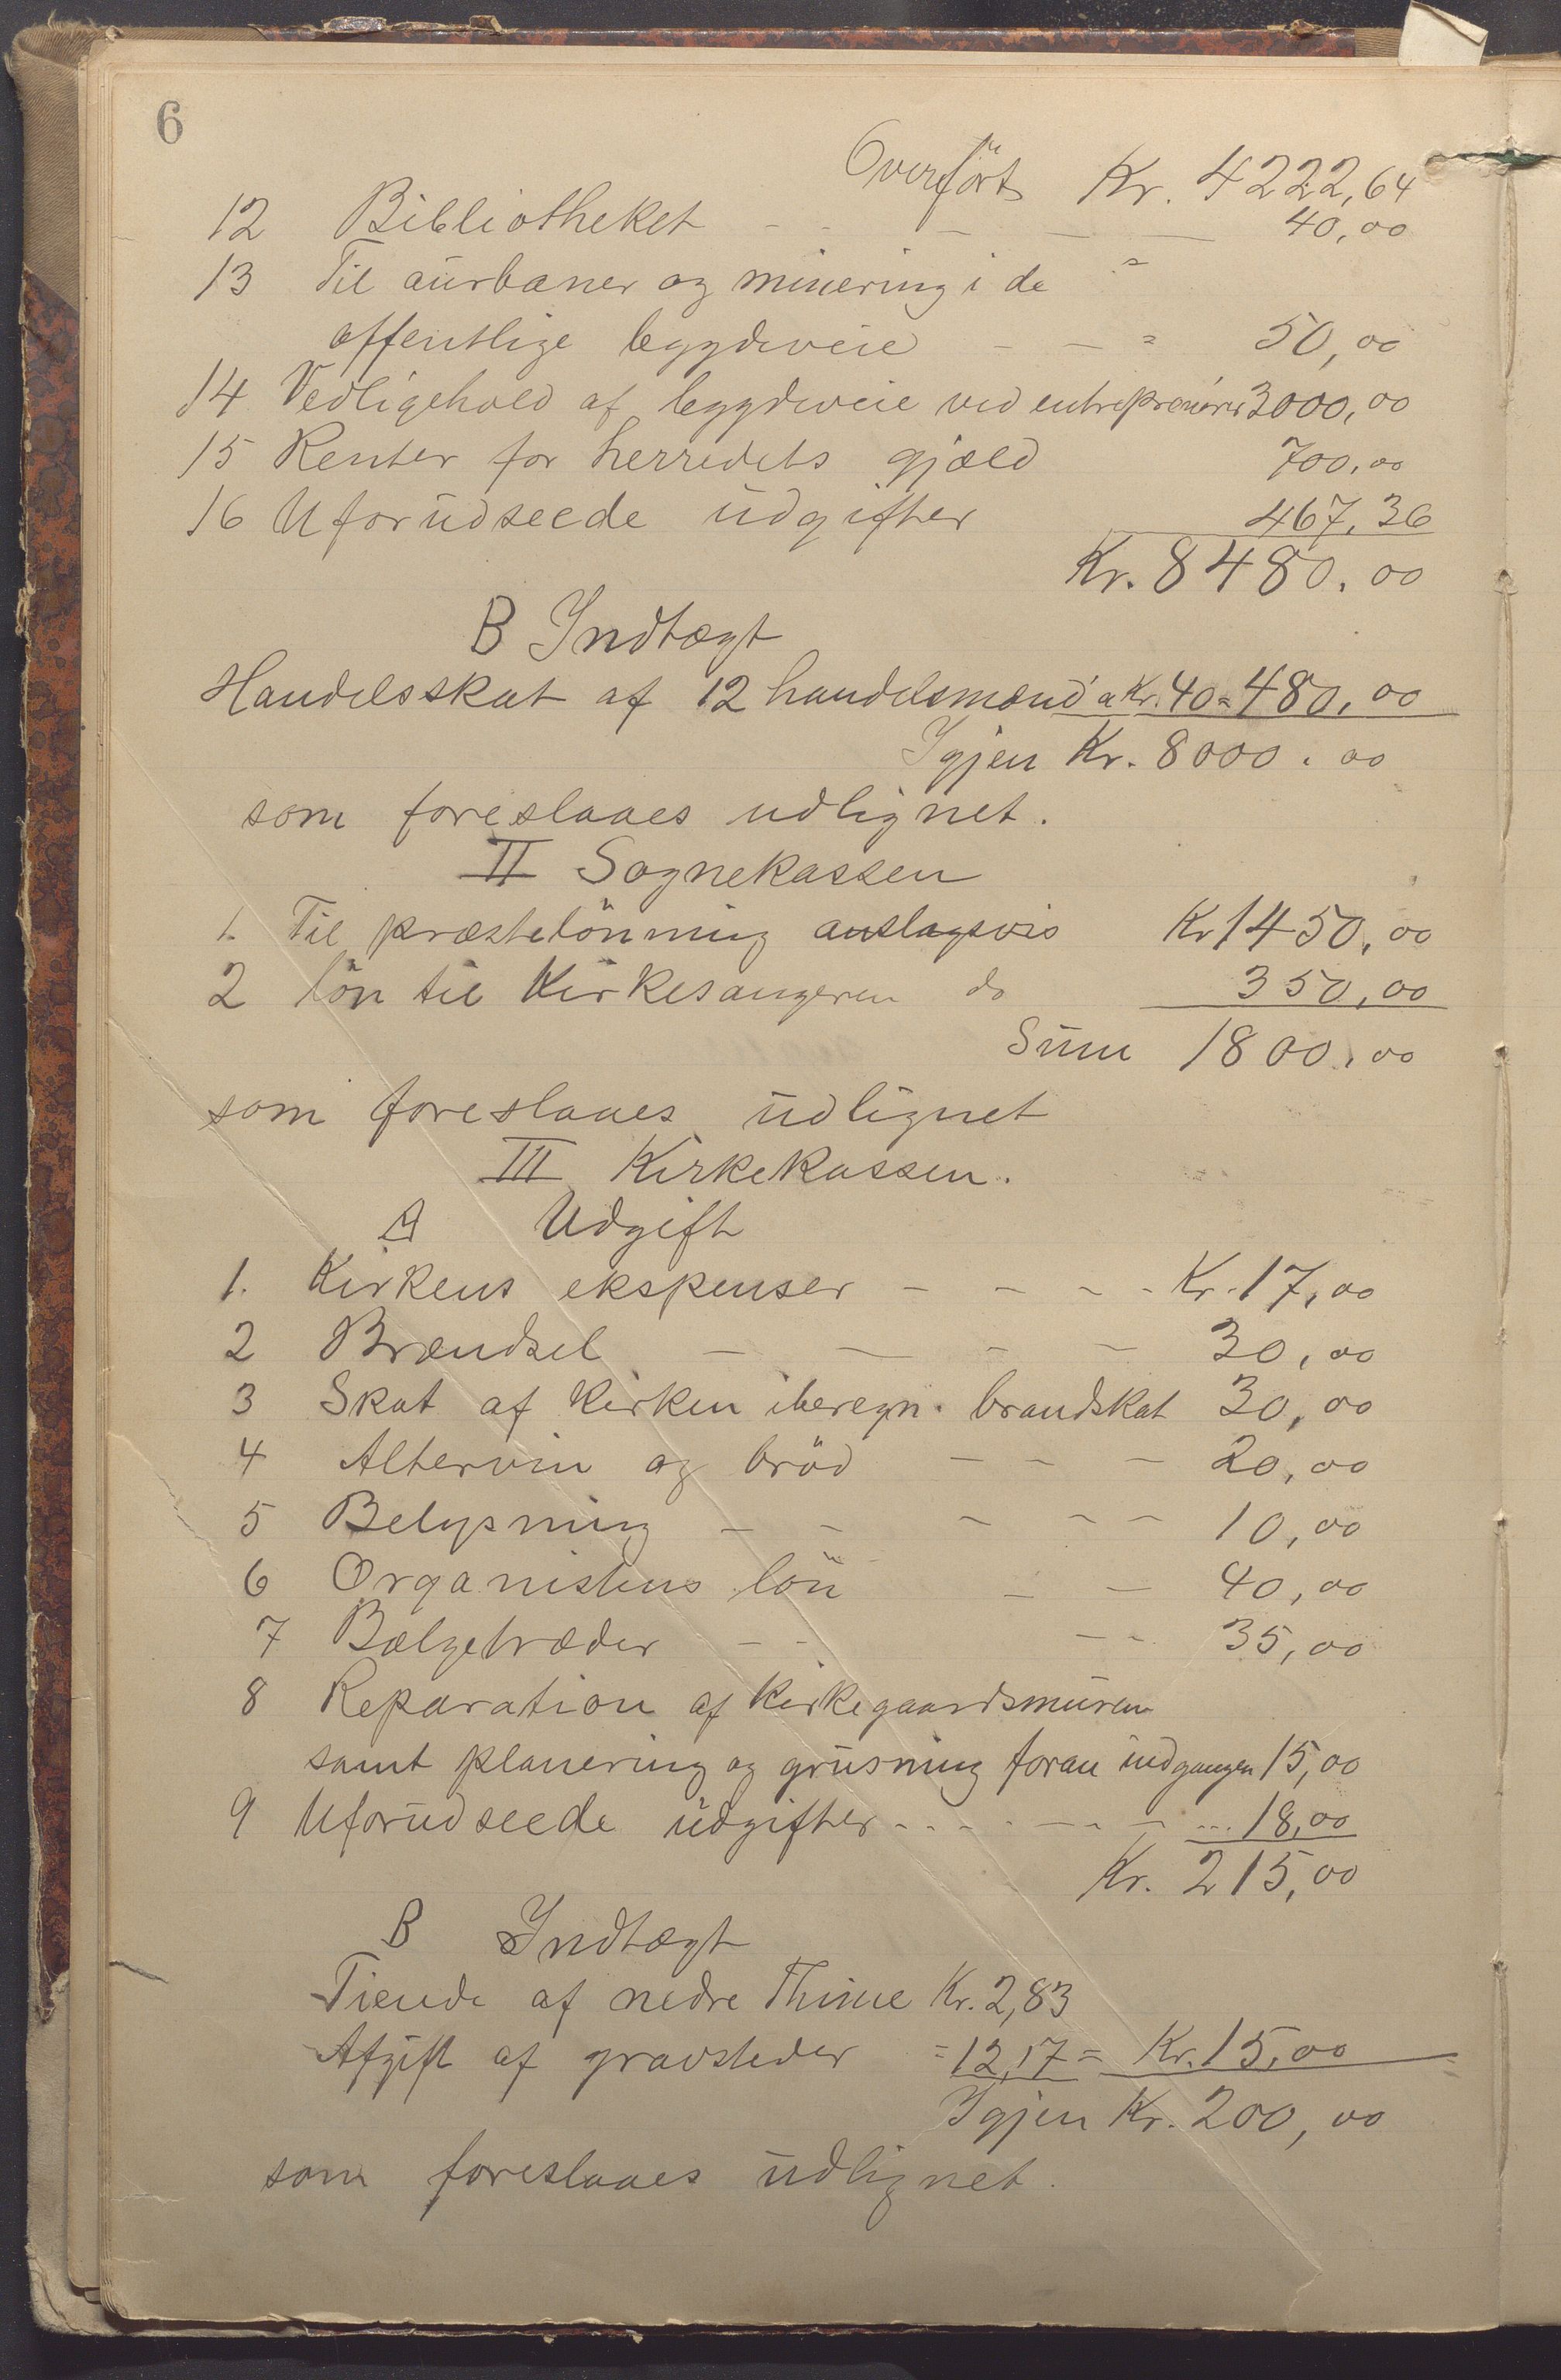 6
Overført Kr. 4222,64
12 Bibliotheket - - - - - 40,00
13 Til aurbaner og minering i de "
offentlige bygdeveie - - " 50,00
14 Vedligehold af bygdeveie ved entreprenører 3000,00
15 Renter for herredets gjæld 700,00
16 Uforudseede udgifter 467,36
Kr. 8480,00
B Indtægt
Handelsskat af 12 handelsmænd a Kr. 40 = 480,00
Igjen Kr. 8000,00
som foreslaaes udlignet.
II Sognekassen
1. Til præstelönning anslagsvis Kr 1450,00
2 lön til Kirkesangeren do 350,00
Sum 1800,00
som foreslaaes udlignet
III Kirkekassen.
A Udgift
1. Kirkens ekspenser - - - - Kr. 17,00
2 Brændsel - - - - 30,00
3 Skat af Kirken iberegn. brandskat 30,00
4 Altervin og bröd - - - 20,00
5 Belysning - - - - - 10,00
6 Organistens lön - - 40,00
7 Bælgetræder - - - - 35,00
8 Reparation af Kirkegaardsmuren
samt planering og grusning foran indgangen 15,00
9 Uforudseede udgifter - - - - - - - 18,00
Kr. 215,00
B Indtægt
Tiende af nedre Thime Kr. 2,83
Afgift af gravsteder = 12,17 = Kr. 15,00
Igjen Kr. 200,00
som foreslaaes udlignet.